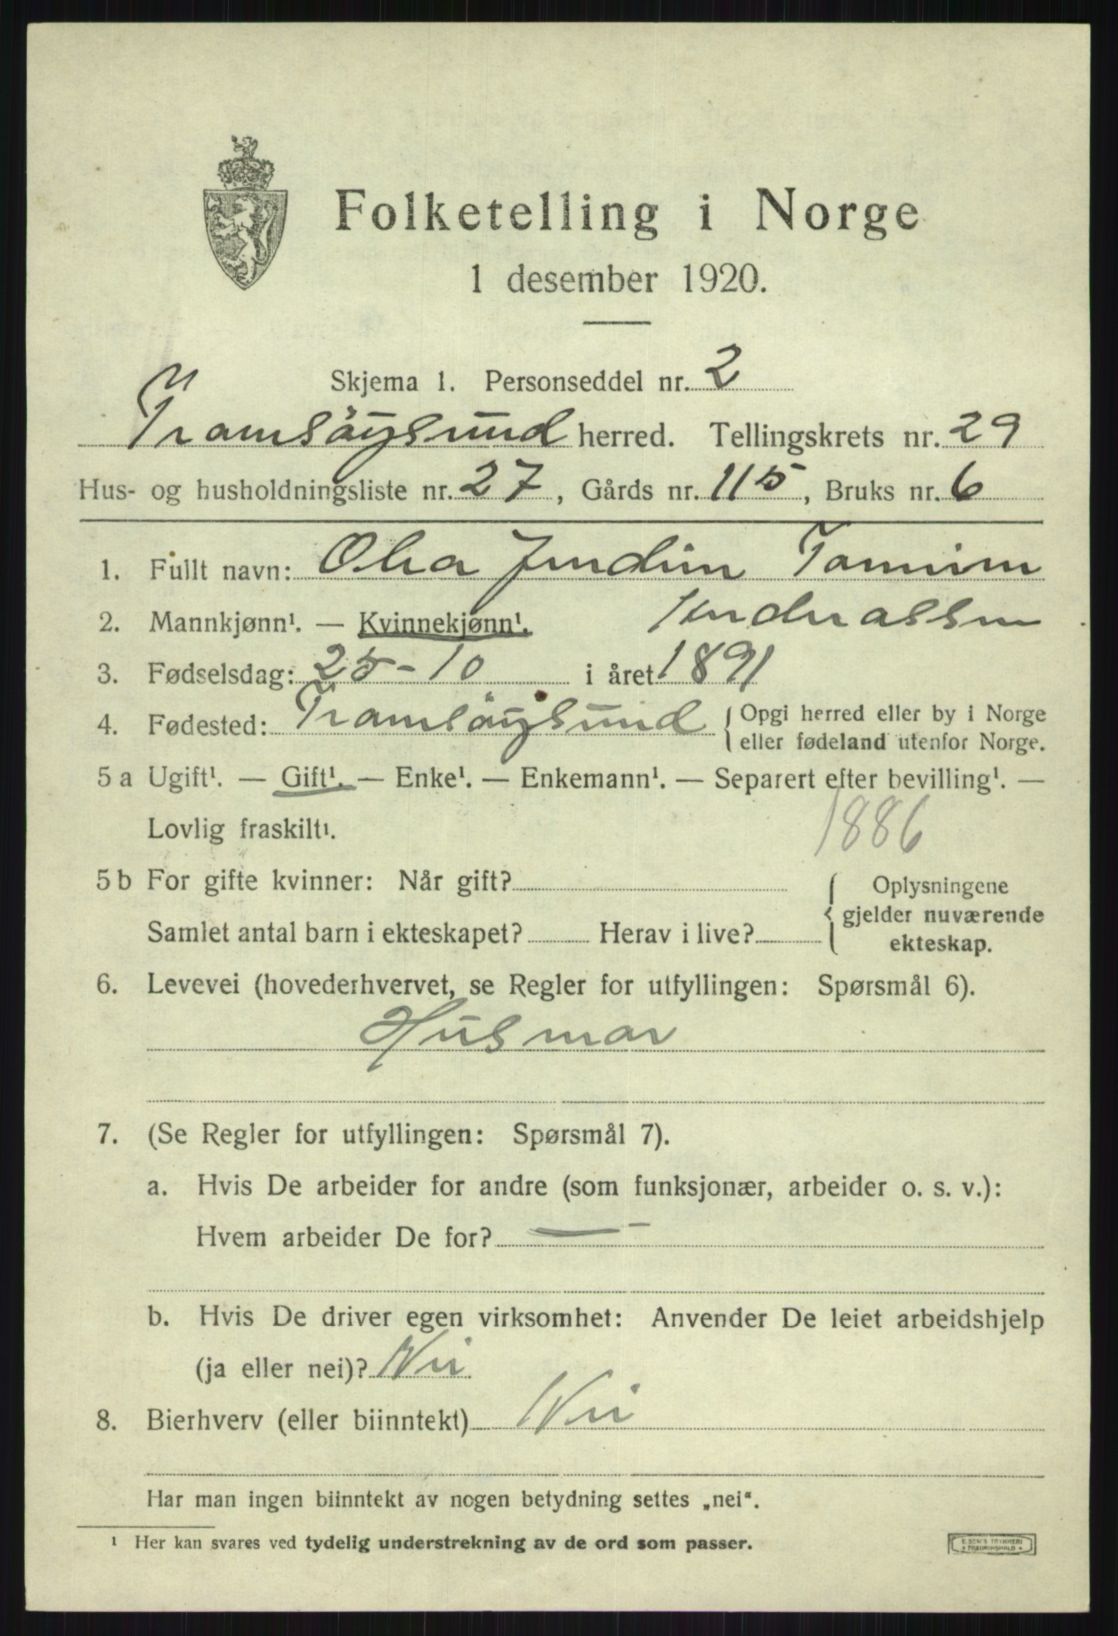 Folketelling i Norge
1 desember 1920.
Skjema 1. Personseddel nr. 2
Tromsöysund herred. Tellingskrets nr. 29
Hus- og husholdningsliste nr. 27, Gårds nr. 115, Bruks nr. 6
1. Fullt navn: Olea
2. Mannkjønn¹. — Kvinnekjønn¹.
3. Fødselsdag: 25-10 i året 1891
4. Fødested: Tromsöysund { Opgi herred eller by i Norge
eller fødeland utenfor Norge.
5 a Ugift¹. — Gift¹. — Enke¹. — Enkemann¹. — Separert efter bevilling¹. —
Lovlig fraskilt¹.
1886
5 b For gifte kvinner: Når gift?
Samlet antal barn i ekteskapet? Herav i live?
{ Oplysningene
gjelder nuværende
ekteskap.
6. Levevei (hovederhvervet, se Regler for utfyllingen: Spørsmål 6).
Husmor
7. (Se Regler for utfyllingen: Spørsmål 7).
a. Hvis De arbeider for andre (som funksjonær, arbeider o. s. v.):
Hvem arbeider De for? —
b. Hvis De driver egen virksomhet: Anvender De leiet arbeidshjelp
(ja eller nei)? Nei
8. Bierhverv (eller biinntekt) Nei
Har man ingen biinntekt av nogen betydning settes „nei“.
¹ Her kan svares ved tydelig understrekning av de ord som passer.